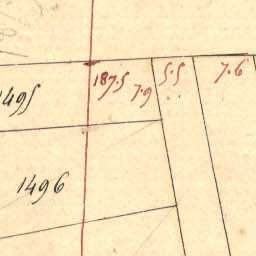 187.5 7.9 5.5 7.6
1495
1496